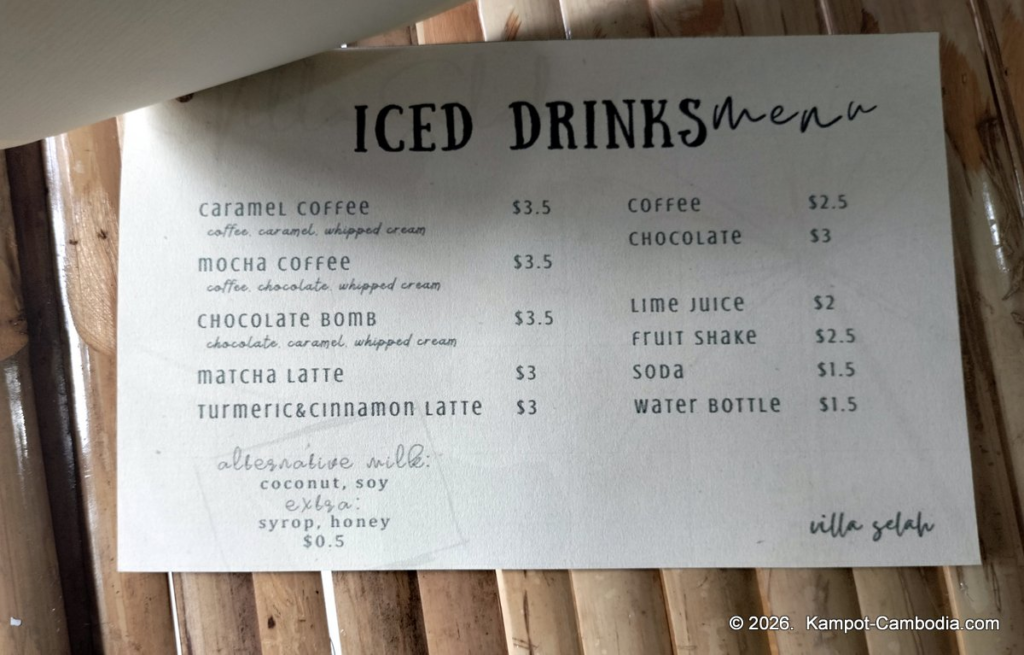 ICED DRINKS menu
caramel coffee $3.5
coffee, caramel, whipped cream
mocha coffee $3.5
coffee, chocolate, whipped cream
chocolate bomb $3.5
chocolate, caramel, whipped cream
matcha latte $3
turmeric&cinnamon latte $3
alternative milk:
coconut, soy
extra:
syrop, honey
$0.5
coffee $2.5
chocolate $3
lime juice $2
fruit shake $2.5
soda $1.5
water bottle $1.5
villa selah
© 2026. Kampot-Cambodia.com